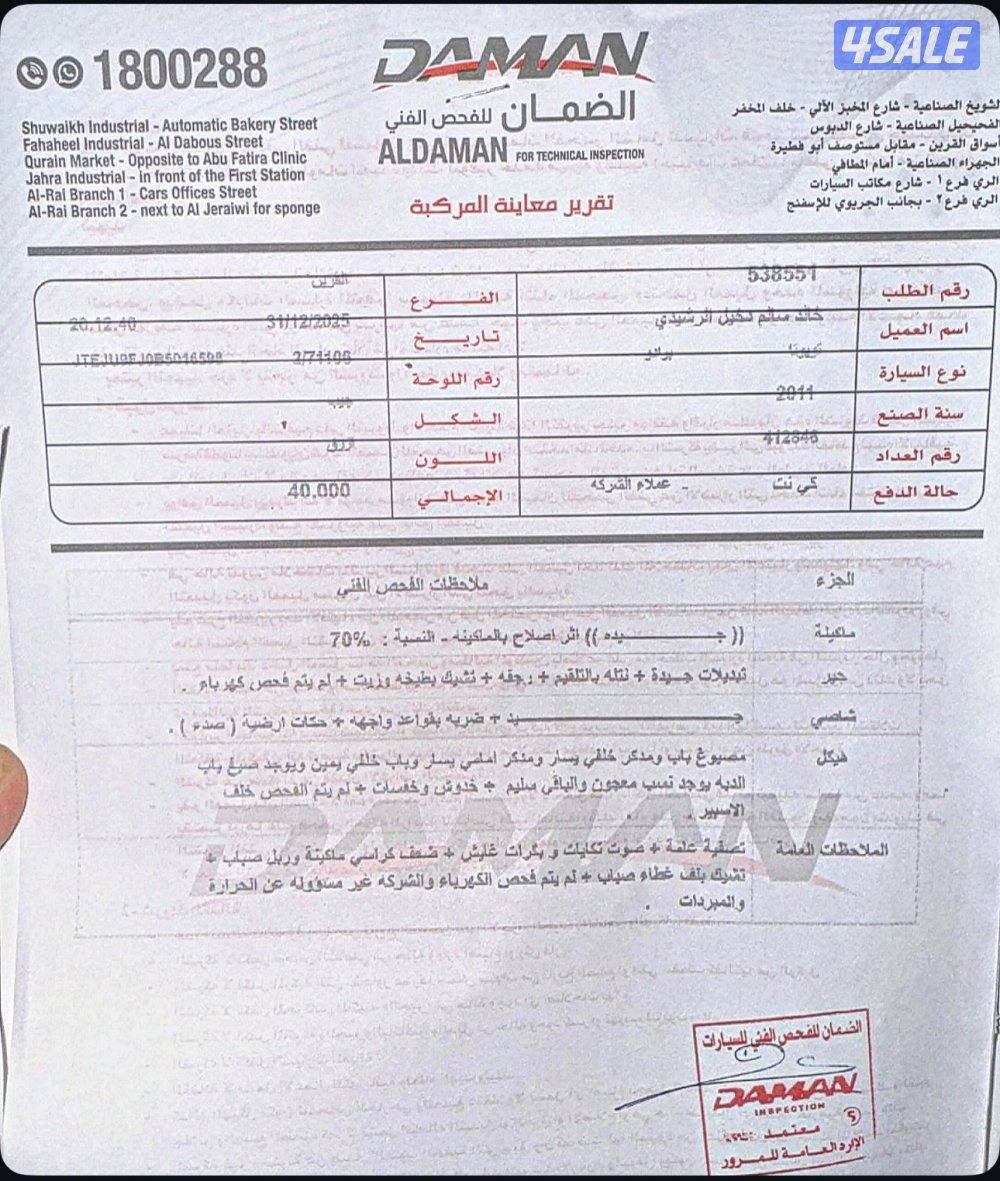 4SALE
1800288
DAMAN
الضمان للفحص الفني
ALDAMAN FOR TECHNICAL INSPECTION
تقرير معاينة المركبة
Shuwaikh Industrial - Automatic Bakery Street
Fahaheel Industrial - Al Dabous Street
Qurain Market - Opposite to Abu Fatira Clinic
Jahra Industrial - in front of the First Station
Al-Rai Branch 1 - Cars Offices Street
Al-Rai Branch 2 - next to Al Jeraiwi for sponge
الشويخ الصناعية - شارع المخبز الآلي - خلف المخفر
الفحيحيل الصناعية - شارع الدبوس
أسواق القرين - مقابل مستوصف أبو فطيرة
الجهراء الصناعية - أمام المطافي
الري فرع ١ - شارع مكاتب السيارات
الري فرع ٢ - بجانب الجريوي للإسفنج
رقم الطلب 538551 الفرع القرين
اسم العميل خالد سالم دخيل الرشيدي تاريخ 31/12/2025 20:12:40
نوع السيارة تويوتا برادو رقم اللوحة 2/71106
سنة الصنع 2011 الشكل جيب
رقم العداد 412848 اللون ازرق
حالة الدفع كي نت - عملاء الشركه الإجمالي 40.000
الجزء ملاحظات الفحص الفني
ماكينة (( جـــــــيده )) اثر اصلاح بالماكينه - النسبة : 70%
جير تبديلات جيدة + نتله بالتلقيم + رجفه + تشيك بطيخه وزيت + لم يتم فحص كهرباء
شاصي جـــــــيد + ضربه بقواعد واجهه + حكات ارضية ( صدء ) .
هيكل مصبوغ باب ومدكر خلفي يسار ومدكر امامي يسار وباب خلفي يمين ويوجد صبغ باب
الدبه يوجد نسب معجون والباقي سليم + خدوش وخفسات + لم يتم الفحص خلف
الاسبير .
الملاحظات العامة تصفية عامة + صوت تكايات و بكرات قايش + ضعف كراسي ماكينة وربل صباب +
تشيك بلف غطاء صباب + لم يتم فحص الكهرباء والشركه غير مسؤوله عن الحرارة
والمبردات .
DAMAN
الضمان للفحص الفني للسيارات
DAMAN
INSPECTION
معتمد
الإدارة العامة للمرور